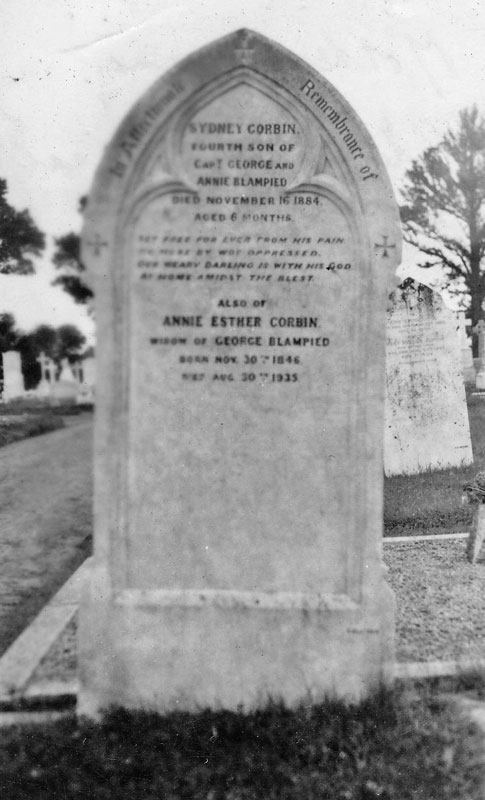 In Affectionate
Remembrance of
SYDNEY CORBIN,
FOURTH SON OF
CAPT GEORGE AND
ANNIE BLAMPIED
DIED NOVEMBER 16 1884.
AGED 6 MONTHS.
SET FREE FOR EVER FROM HIS PAIN
NO MORE BY WOE OPPRESSED.
OUR WEARY DARLING IS WITH HIS GOD
AT HOME AMIDST THE BLEST.
ALSO OF
ANNIE ESTHER CORBIN.
WIDOW OF GEORGE BLAMPIED
BORN NOV. 30TH 1846
DIED AUG. 30TH 1935